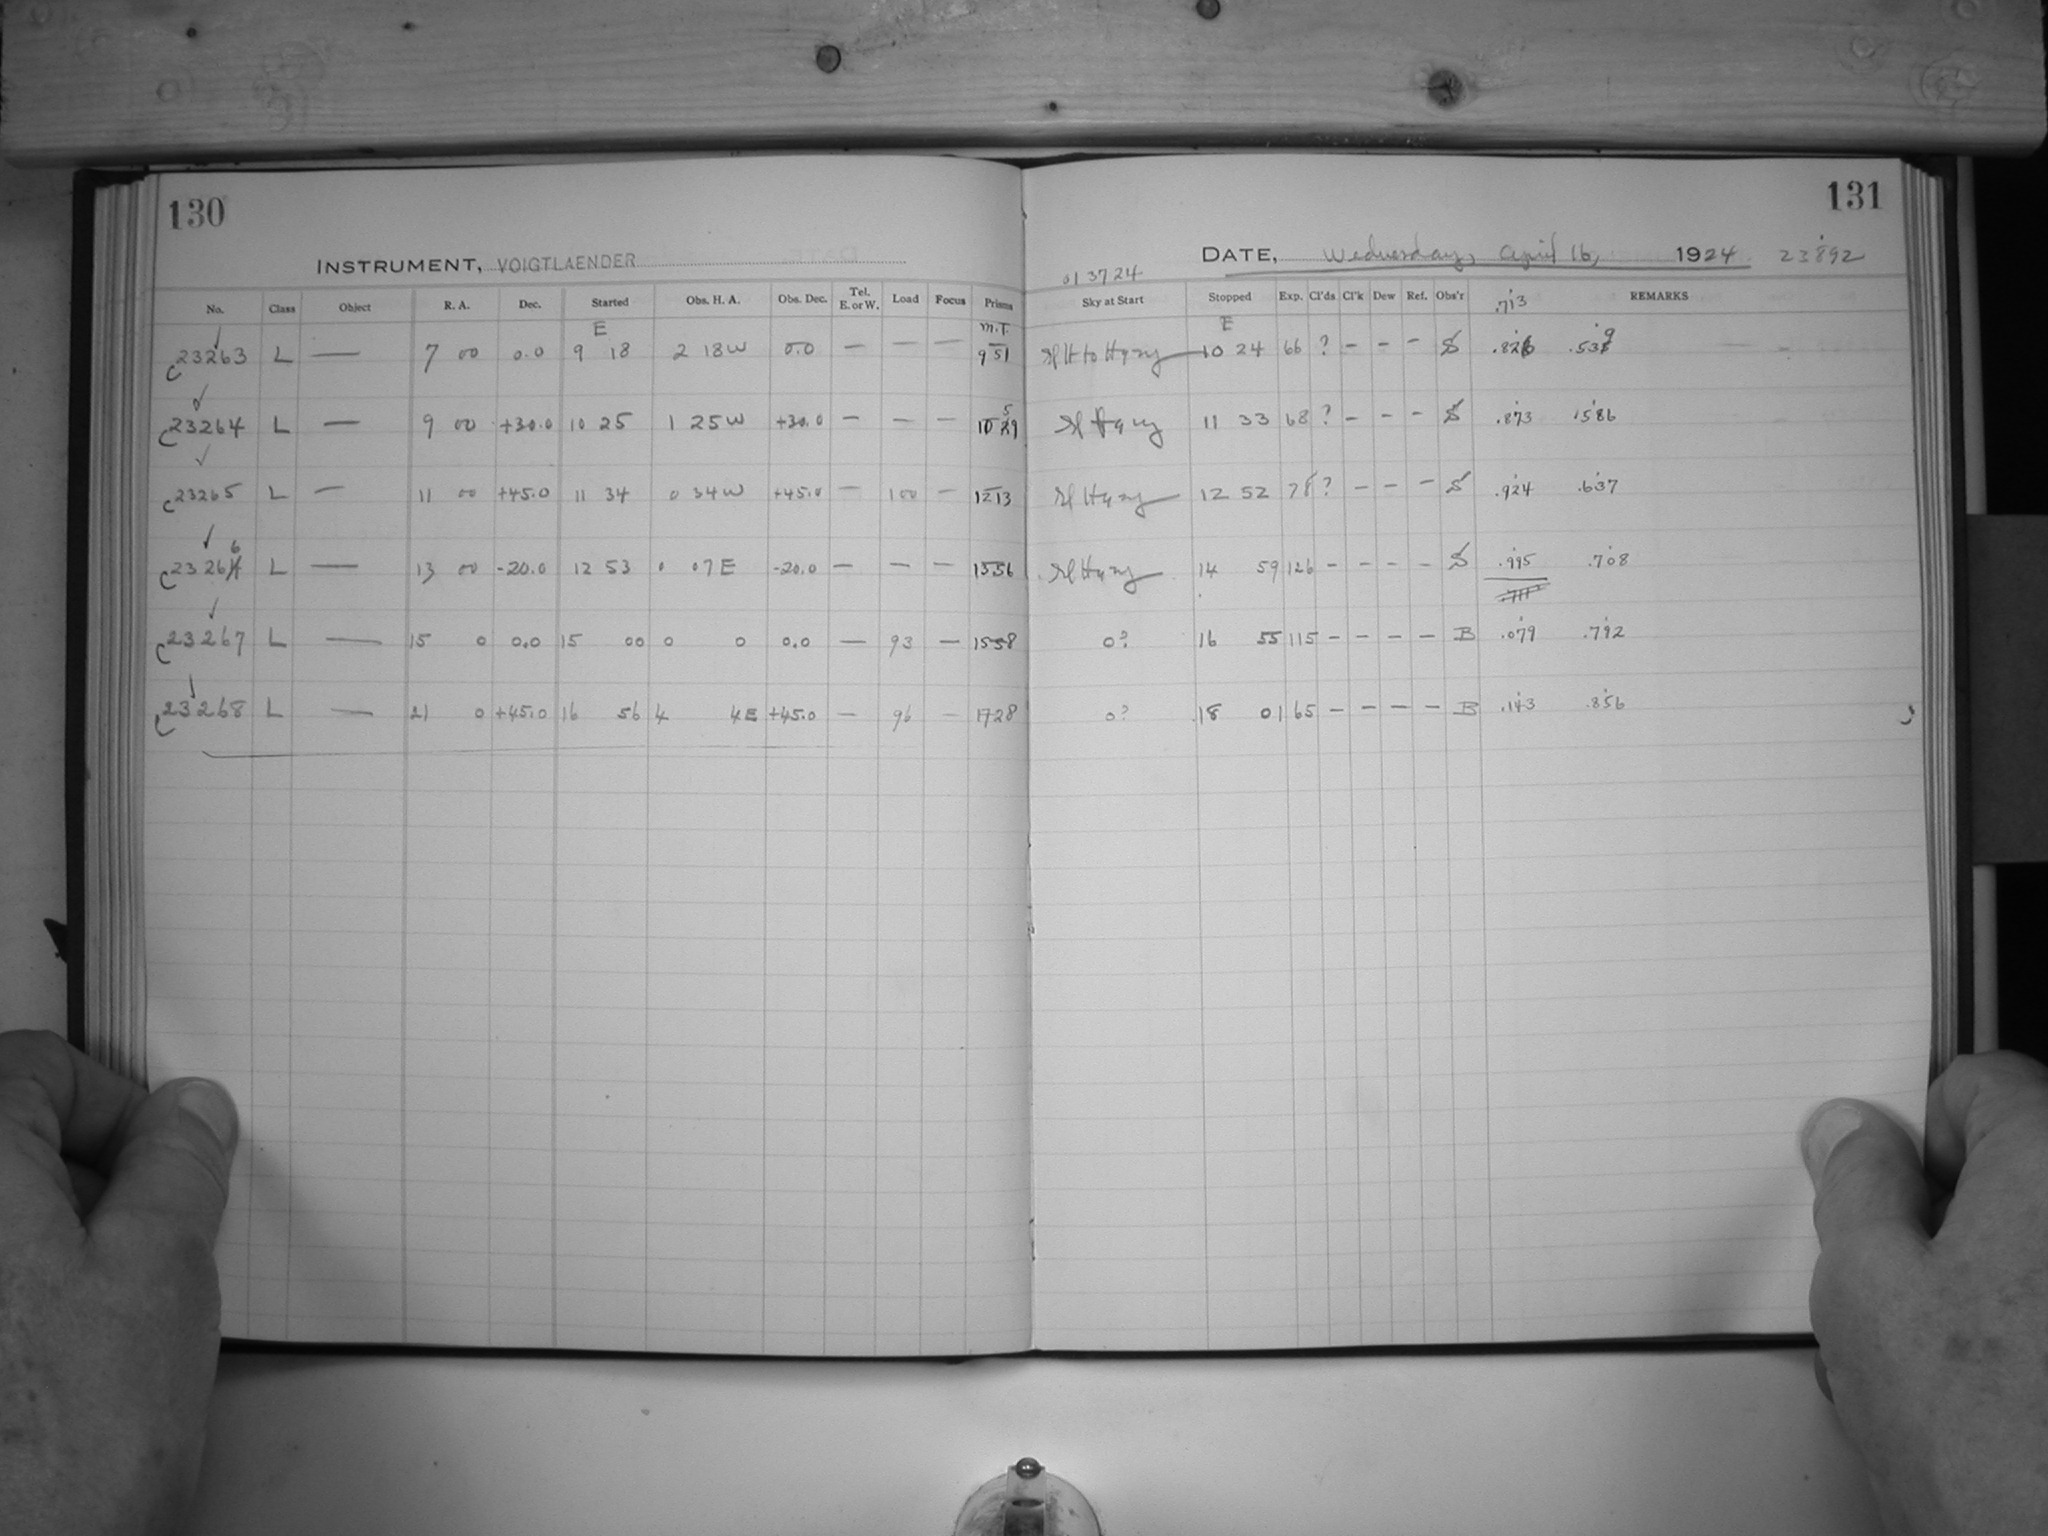 130
INSTRUMENT, VOIGTLAENDER
No. Class Object R. A. Dec. Started Obs. H. A. Obs. Dec. Tel. E. or W. Load Focus Prisms
E M.T.
C23263 L — 7 00 0.0 9 18 2 18W 0.0 — — — 9 51
C23264 L — 9 00 +30.0 10 25 1 25W +30.0 — — — 10 59
C23265 L — 11 00 +45.0 11 34 0 34W +45.0 — 100 — 12 13
C23266 L — 13 00 -20.0 12 53 0 07E -20.0 — — — 1356
C23267 L — 15 0 0.0 15 00 0 0 0.0 — 93 — 1558
C23268 L — 21 0 +45.0 16 56 4 4E +45.0 — 96 — 1728
131
DATE, Wednesday, April 16, 1924 23892
013724
Sky at Start Stopped Exp. Cl'ds Cl'k Dew Ref. Obs'r REMARKS
.713
E
Sl H to Hazy 10 24 66 ? - - - S .826 .539
Sl Hazy 11 33 68 ? - - - S .873 .586
Sl Hazy 12 52 78 ? - - - S .924 .637
Sl Hazy 14 59 126 - - - - S .995 .708
0? 16 55 115 - - - - B .079 .792
0? 18 01 65 - - - - B .143 .856